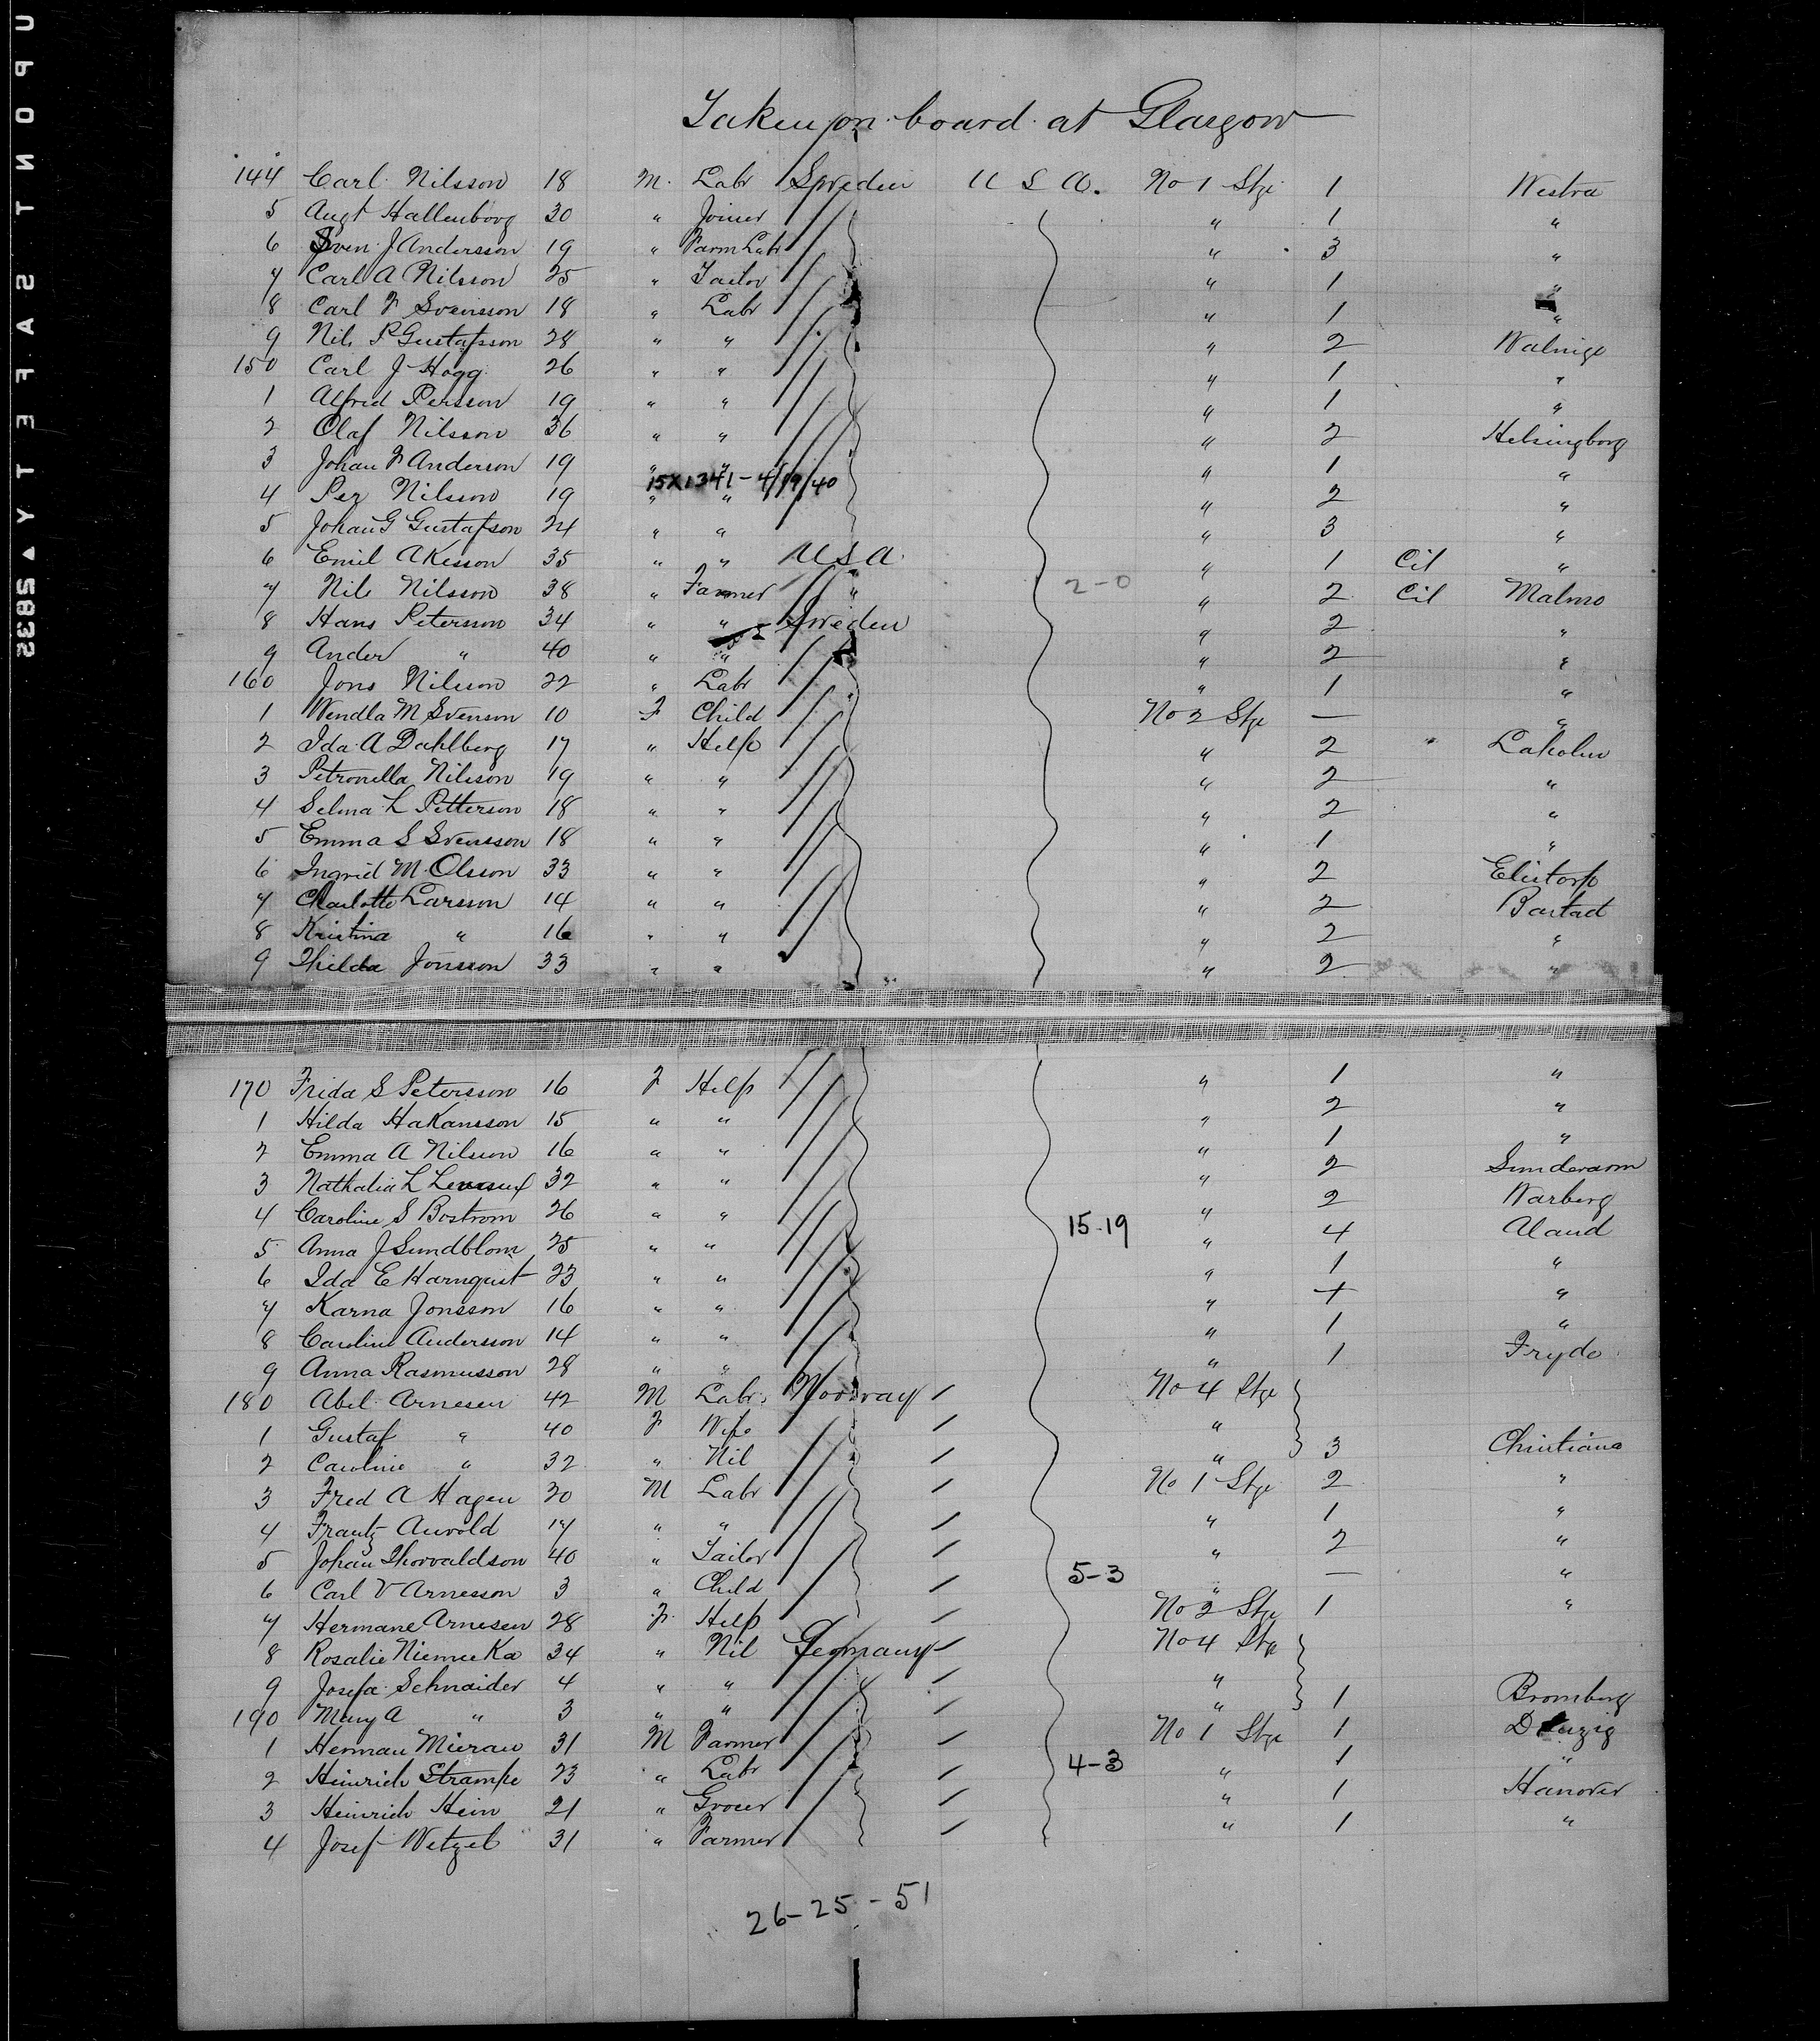 Taken on board at Glasgow
144 Carl Nilsson 18 M. Labr Sweden U S A. No 1 Stge 1 Westra
5 Augt Hallenborg 30 " Joiner " 1 "
6 Sven J Andersson 19 " Farm Labr " 3 "
7 Carl A Nilsson 25 " Tailor " 1 "
8 Carl F Svensson 18 " Labr " 1 "
9 Nils P Gustafsson 28 " " " 2 Walnige
150 Carl J Hogg 26 " " " 1 "
1 Alfred Persson 19 " " " 1 "
2 Olaf Nilsson 36 " " " 2 Helsingborg
3 Johan F Anderson 19 " " " 1 "
15X1341-4/19/40
4 Per Nilsson 19 " " " 2 "
5 Johan G Gustafson 24 " " " 3 "
6 Emil Akesson 35 " " U S A. " 1 Cit "
7 Nils Nilsson 38 " Farmer " 2-0 " 2 Cit Malmo
8 Hans Petersson 34 " " Sweden " 2 "
9 Ander " 40 " " " 2 "
160 Jons Nilsson 22 " Labr " 1 "
1 Wendla M Svenson 10 F Child No 2 Stge — "
2 Ida A Dahlberg 17 " Help " 2 Laholm
3 Petronella Nilsson 19 " " " 2 "
4 Selma L Petterson 18 " " " 2 "
5 Emma S Svensson 18 " " " 1 "
6 Ingrid M. Olsson 33 " " " 2 Elistorp
7 Charlotte Larsson 14 " " " 2 Bastad
8 Kristina " 16 " " " 2 "
9 Thilda Jonsson 33 " " " 2 "
170 Frida S Petersson 16 F Help " 1 "
1 Hilda Hakansson 15 " " " 2 "
2 Emma A Nilsson 16 " " " 1 "
3 Nathalia L 32 " " " 2
4 Caroline S Bostrom 26 " " " 2 Warberg
5 Anna J Sundblom 25 " " 15-19 " 4 Aland
6 Ida E Harnquist 23 " " " 1 "
7 Karna Jonsson 16 " " " "
8 Caroline Andersson 14 " " " 1 "
9 Anna Rasmusson 28 " " " 1 Frydo
180 Abel Arnesen 42 M Labr. Norway No 4 Stge
1 Gustaf " 40 F Wife "
2 Caroline " 32 " Nil " 3 Christiana
3 Fred A Hagen 20 M Labr No 1 Stge 2 "
4 Frantz Auvold 17 " " " 1 "
5 Johan Thorvaldson 40 " Tailor " 2 "
6 Carl V Arnesson 3 " Child 5-3 " — "
7 Hermane Arnesen 28 F. Help No 2 Stge 1 "
8 Rosalie Niemeeka 34 " Nil Germany No 4 Stge
9 Josefa Schnaider 4 " " "
190 Mary A " 3 " " " 1 Bromberg
1 Herman Mierau 31 M Farmer No 1 Stge 1 Danzig
2 Heinrich Strampe 23 " Labr 4-3 " 1 "
3 Heinrich Hein 21 " Grocer " 1 Hanover
4 Josef Wetzel 31 " Farmer " 1 "
26-25-51
U P O N T S A F E T Y ▲ 5832